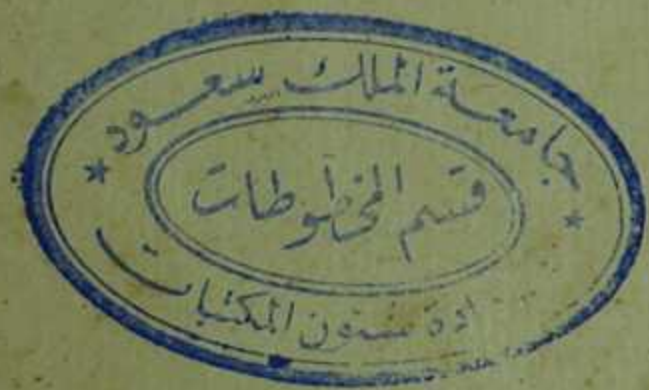 جامعة الملك سعود
قسم المخطوطات
ادة شئون المكتبات